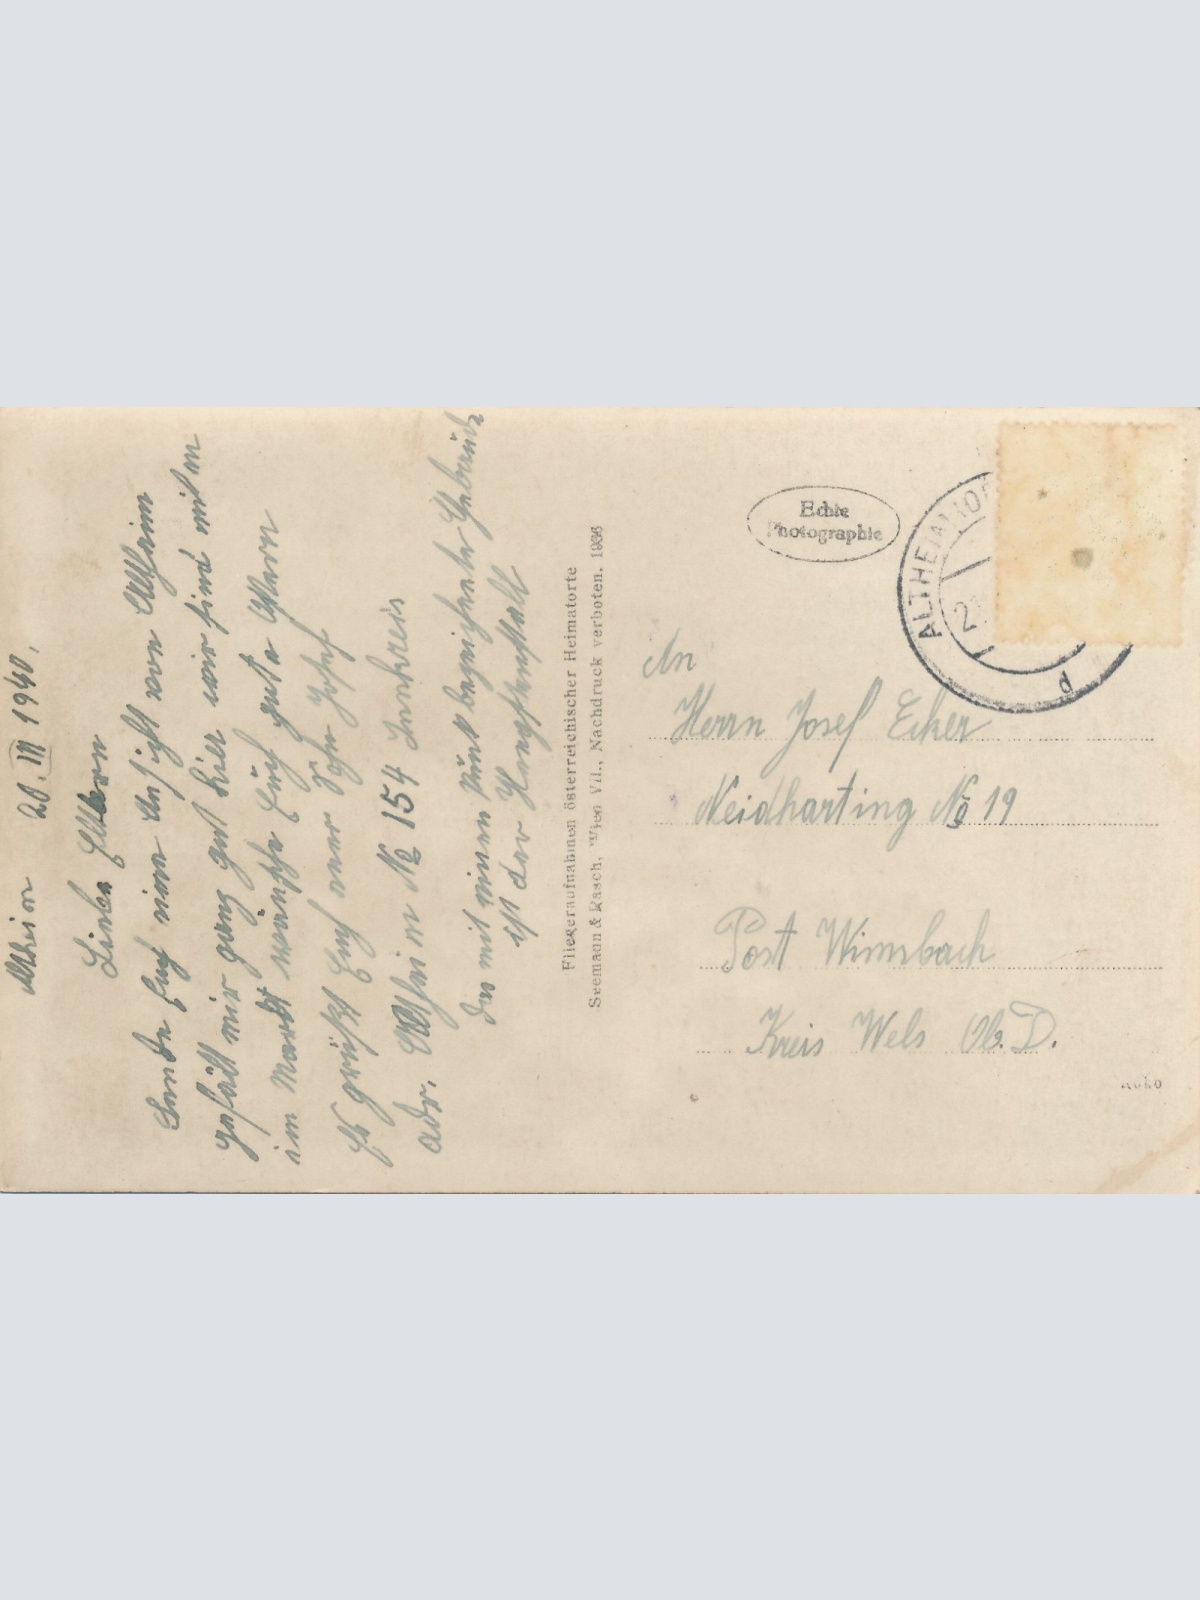 Altheim 20. III 1940.
Liebe Eltern
Sende Euch eine Ansicht von Altheim
gefällt mir ganz gut hier wir sind mitten
im Markt wünsche Euch gute Ostern
Es grüßt Euch euer Sohn Josef
adr. Altheim № 154 Innkreis
Das mit einen Punkt bezeichnete Gebäude
ist der Hengstenstall
Fliegeraufnahmen österreichischer Heimatorte
Seemann & Rasch, Wien VII., Nachdruck verboten. 1936
Echte
Photographie
ALTHEIM
2
d
An
Herrn Josef Ecker
Neidharting № 19
Post Wimsbach
Kreis Wels Ob. D.